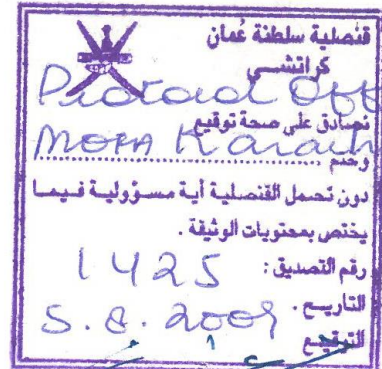 قنصلية سلطنة عُمان
كراتشي
Protocol Off
نصادق على صحة توقيع
MOFA Karachi
وختم
دون تحمل القنصلية أية مسؤولية فيما
يختص بمحتويات الوثيقة .
رقم التصديق :
1425
التاريخ .
5. 8. 2009
التوقيع